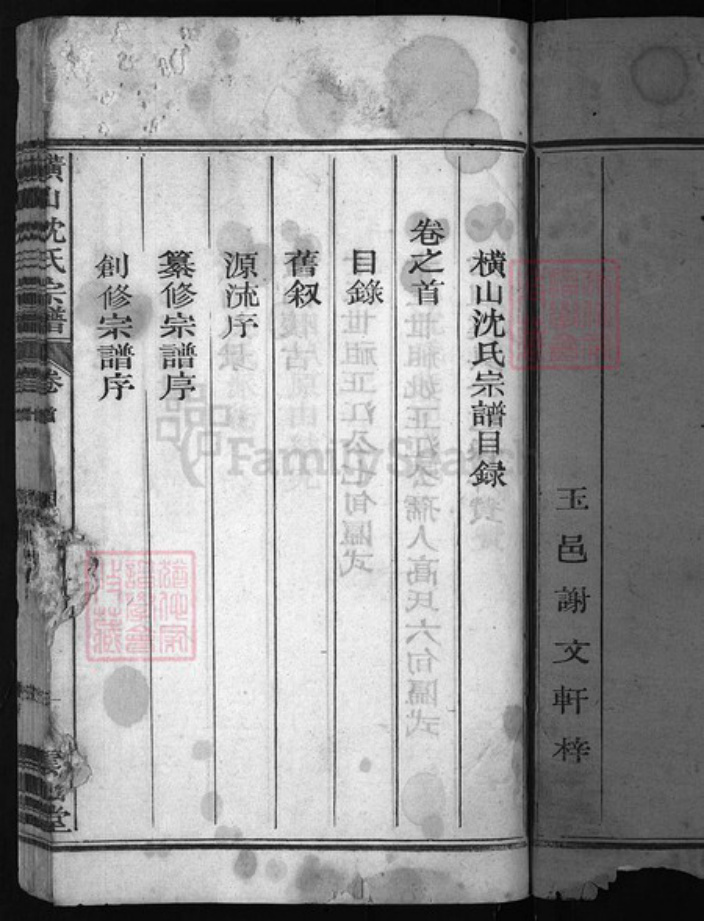 玉邑謝文軒梓
橫山沈氏宗譜目録
卷之首
目錄
舊叙
源流序
纂修宗譜序
創修宗譜序
橫山沈氏宗譜 卷首
FamilySearch